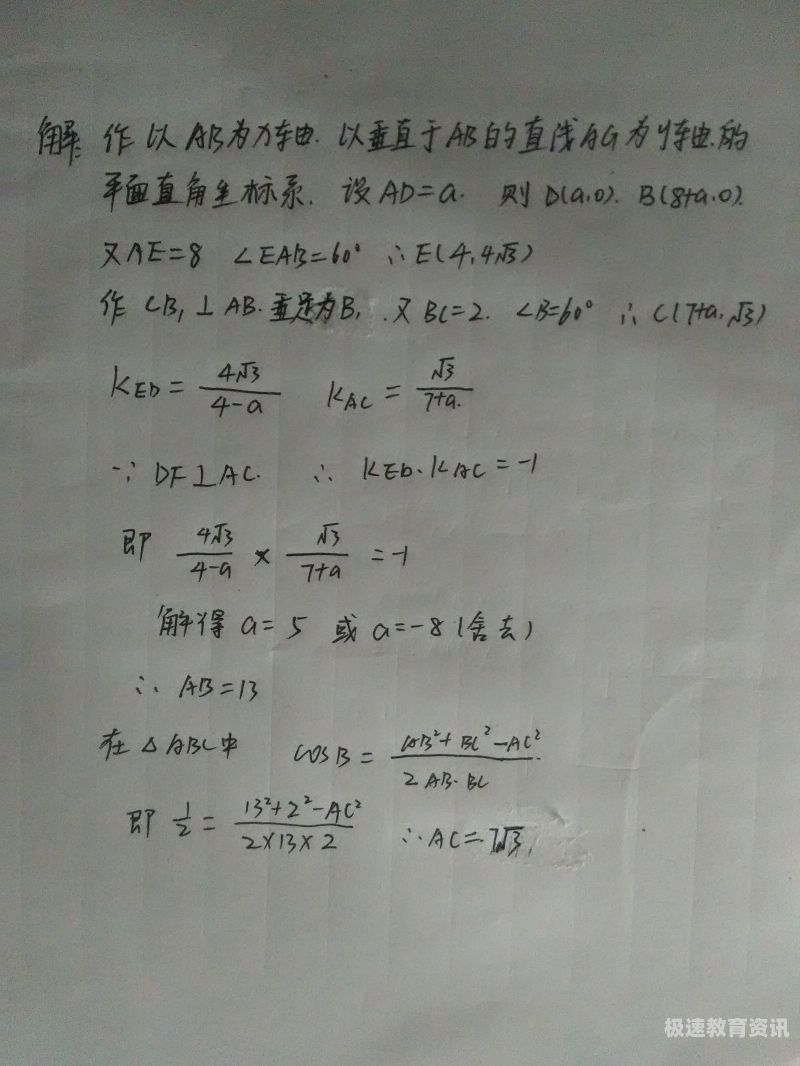 解: 作以AB为x轴. 以垂直于AB的直线AG为y轴.的
平面直角坐标系. 设AD=a. 则D(a,0). B(8+a,0).
又AE=8 ∠EAB=60° ∴E(4,4√3)
作CB₁⊥AB.垂足为B₁ .又BC=2. ∠B=60° ∴C(7+a,√3)
K_ED = 4√3/(4-a) K_AC = √3/(7+a)
∵ DF⊥AC. ∴ K_ED·K_AC=-1
即 4√3/(4-a) × √3/(7+a) =-1
解得 a=5 或 a=-8(舍去)
∴ AB=13
在△ABC中 cosB = (AB²+BC²-AC²)/(2AB·BC)
即 1/2 = (13²+2²-AC²)/(2×13×2) ∴AC=7√3.
极速教育资讯